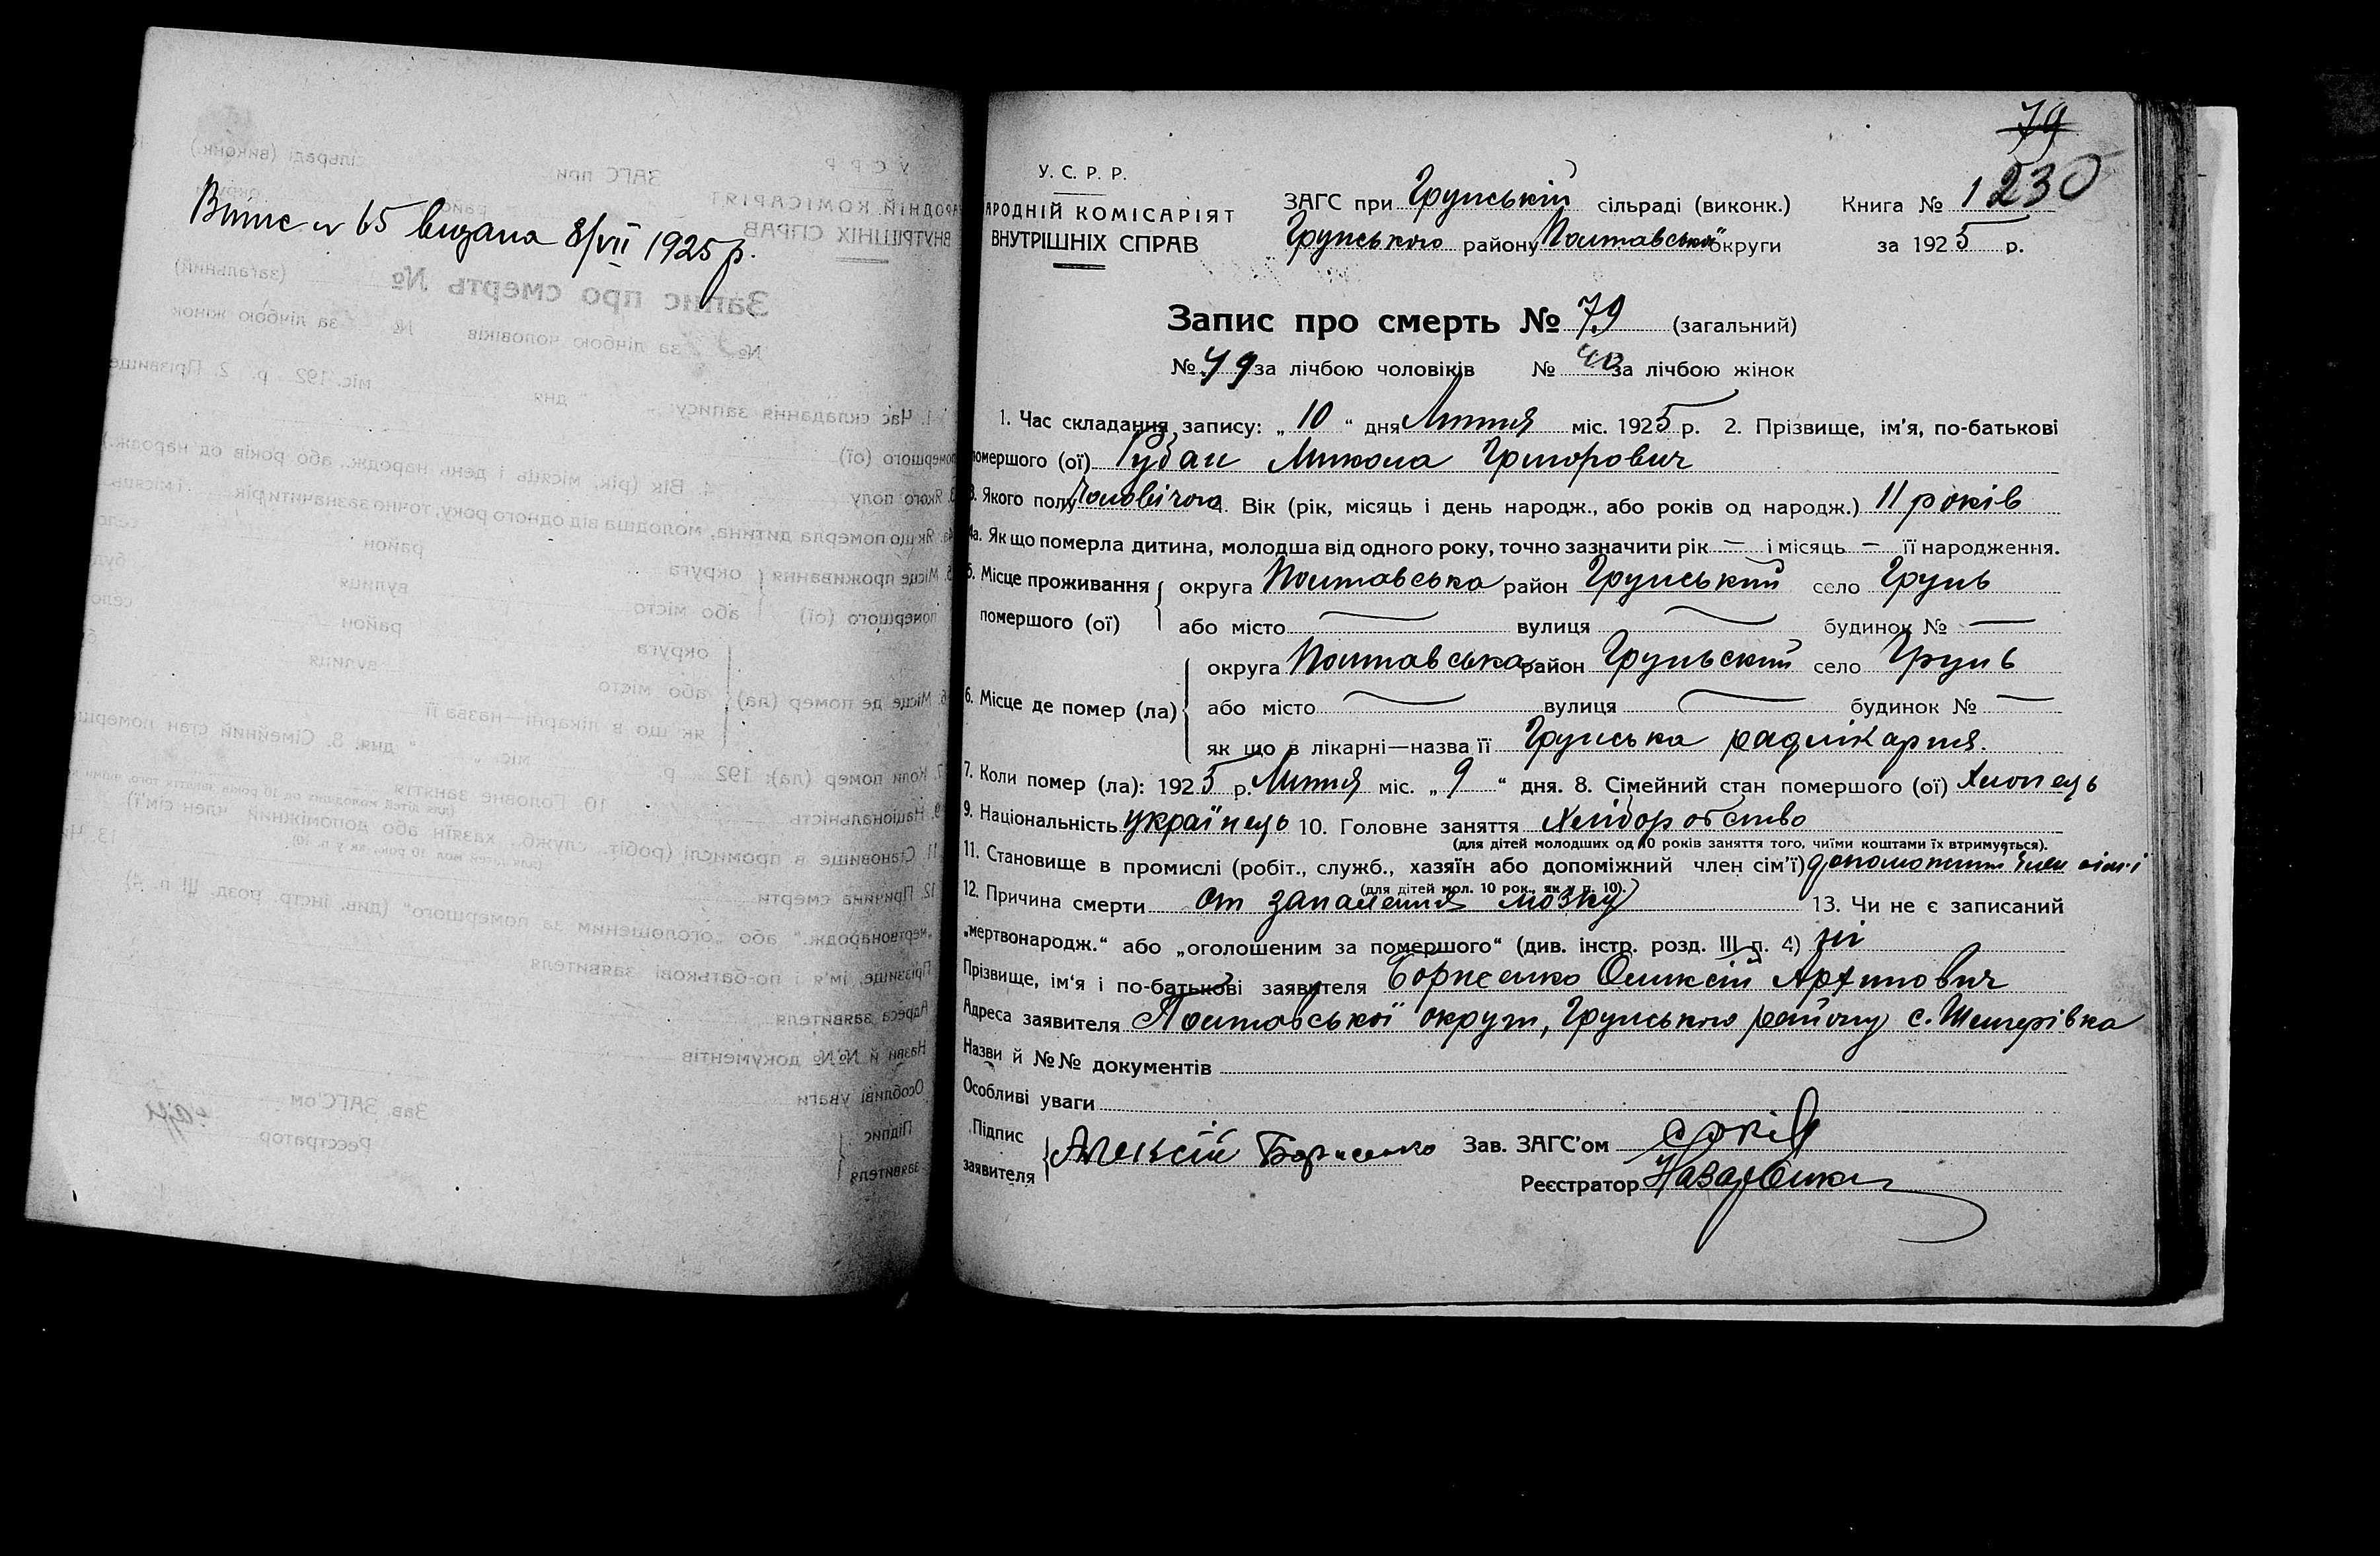 79
230
У. С. Р. Р.
АРОДНІЙ КОМІСАРІЯТ
ВНУТРІШНІХ СПРАВ
ЗАГС при Грунській сільраді (виконк.) Книга № 1
Грунського району Полтавської округи за 1925 р.
Запис про смерть № 79 (загальний)
№ 49 за лічбою чоловіків № за лічбою жінок
1. Час складання запису: „ 10 “ дня Липня міс. 1925 р. 2. Прізвище, ім'я, по-батькові
помершого (ої) Рубан Микола Григорович
3. Якого полу Чоловічого 4. Вік (рік, місяць і день народж., або років од народж.) 11 років
4а. Як що померла дитина, молодша від одного року, точно зазначити рік — і місяць — її народження.
5. Місце проживання округа Полтавська район Грунський село Грунь
помершого (ої) або місто — вулиця — будинок № —
округа Полтавська район Груньский село Грунь
6. Місце де помер (ла) або місто — вулиця — будинок № —
як що в лікарні—назва її Грунська радлікарня.
7. Коли помер (ла): 1925 р. Липня міс. „ 9 “ дня. 8. Сімейний стан помершого (ої) Хлопець
9. Національність українець 10. Головне заняття Хліборобство
(для дітей молодших од 10 років заняття того, чиїми коштами їх втримується).
11. Становище в промислі (робіт., служб., хазяїн або допоміжний член сім'ї) допоможний член сім'ї
(для дітей мол. 10 рок., як у п. 10).
12. Причина смерти от запалення мозку 13. Чи не є записаний
„мертвонародж.“ або „оголошеним за помершого“ (див. інстр. розд. III п. 4) ні
Прізвище, ім'я і по-батькові заявителя Борисенко Оликсій Архипович
Адреса заявителя Полтавської округи, Грунського району с. Шенгерівка
Назви й №№ документів
Особливі уваги
Підпис
заявителя Алексій Борисенко Зав. ЗАГС'ом
Реєстратор
Випис № 65 видана 8/VII 1925 р.